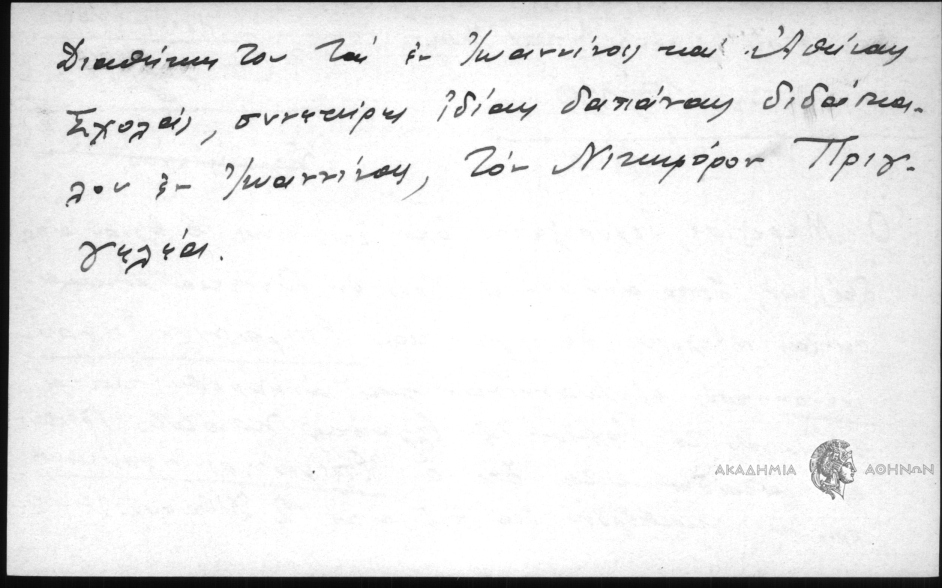 Διαθήκης του τάς ἐν Ἰωαννίνοις καί Ἀθήναις
Σχολάς, συνετήρει ἰδίαις δαπάναις διδάσκα-
λον ἐν Ἰωαννίνοις, τόν Νικηφόρον Πριγ-
γηλέα.
ΑΚΑΔΗΜΙΑ ΑΘΗΝΩΝ